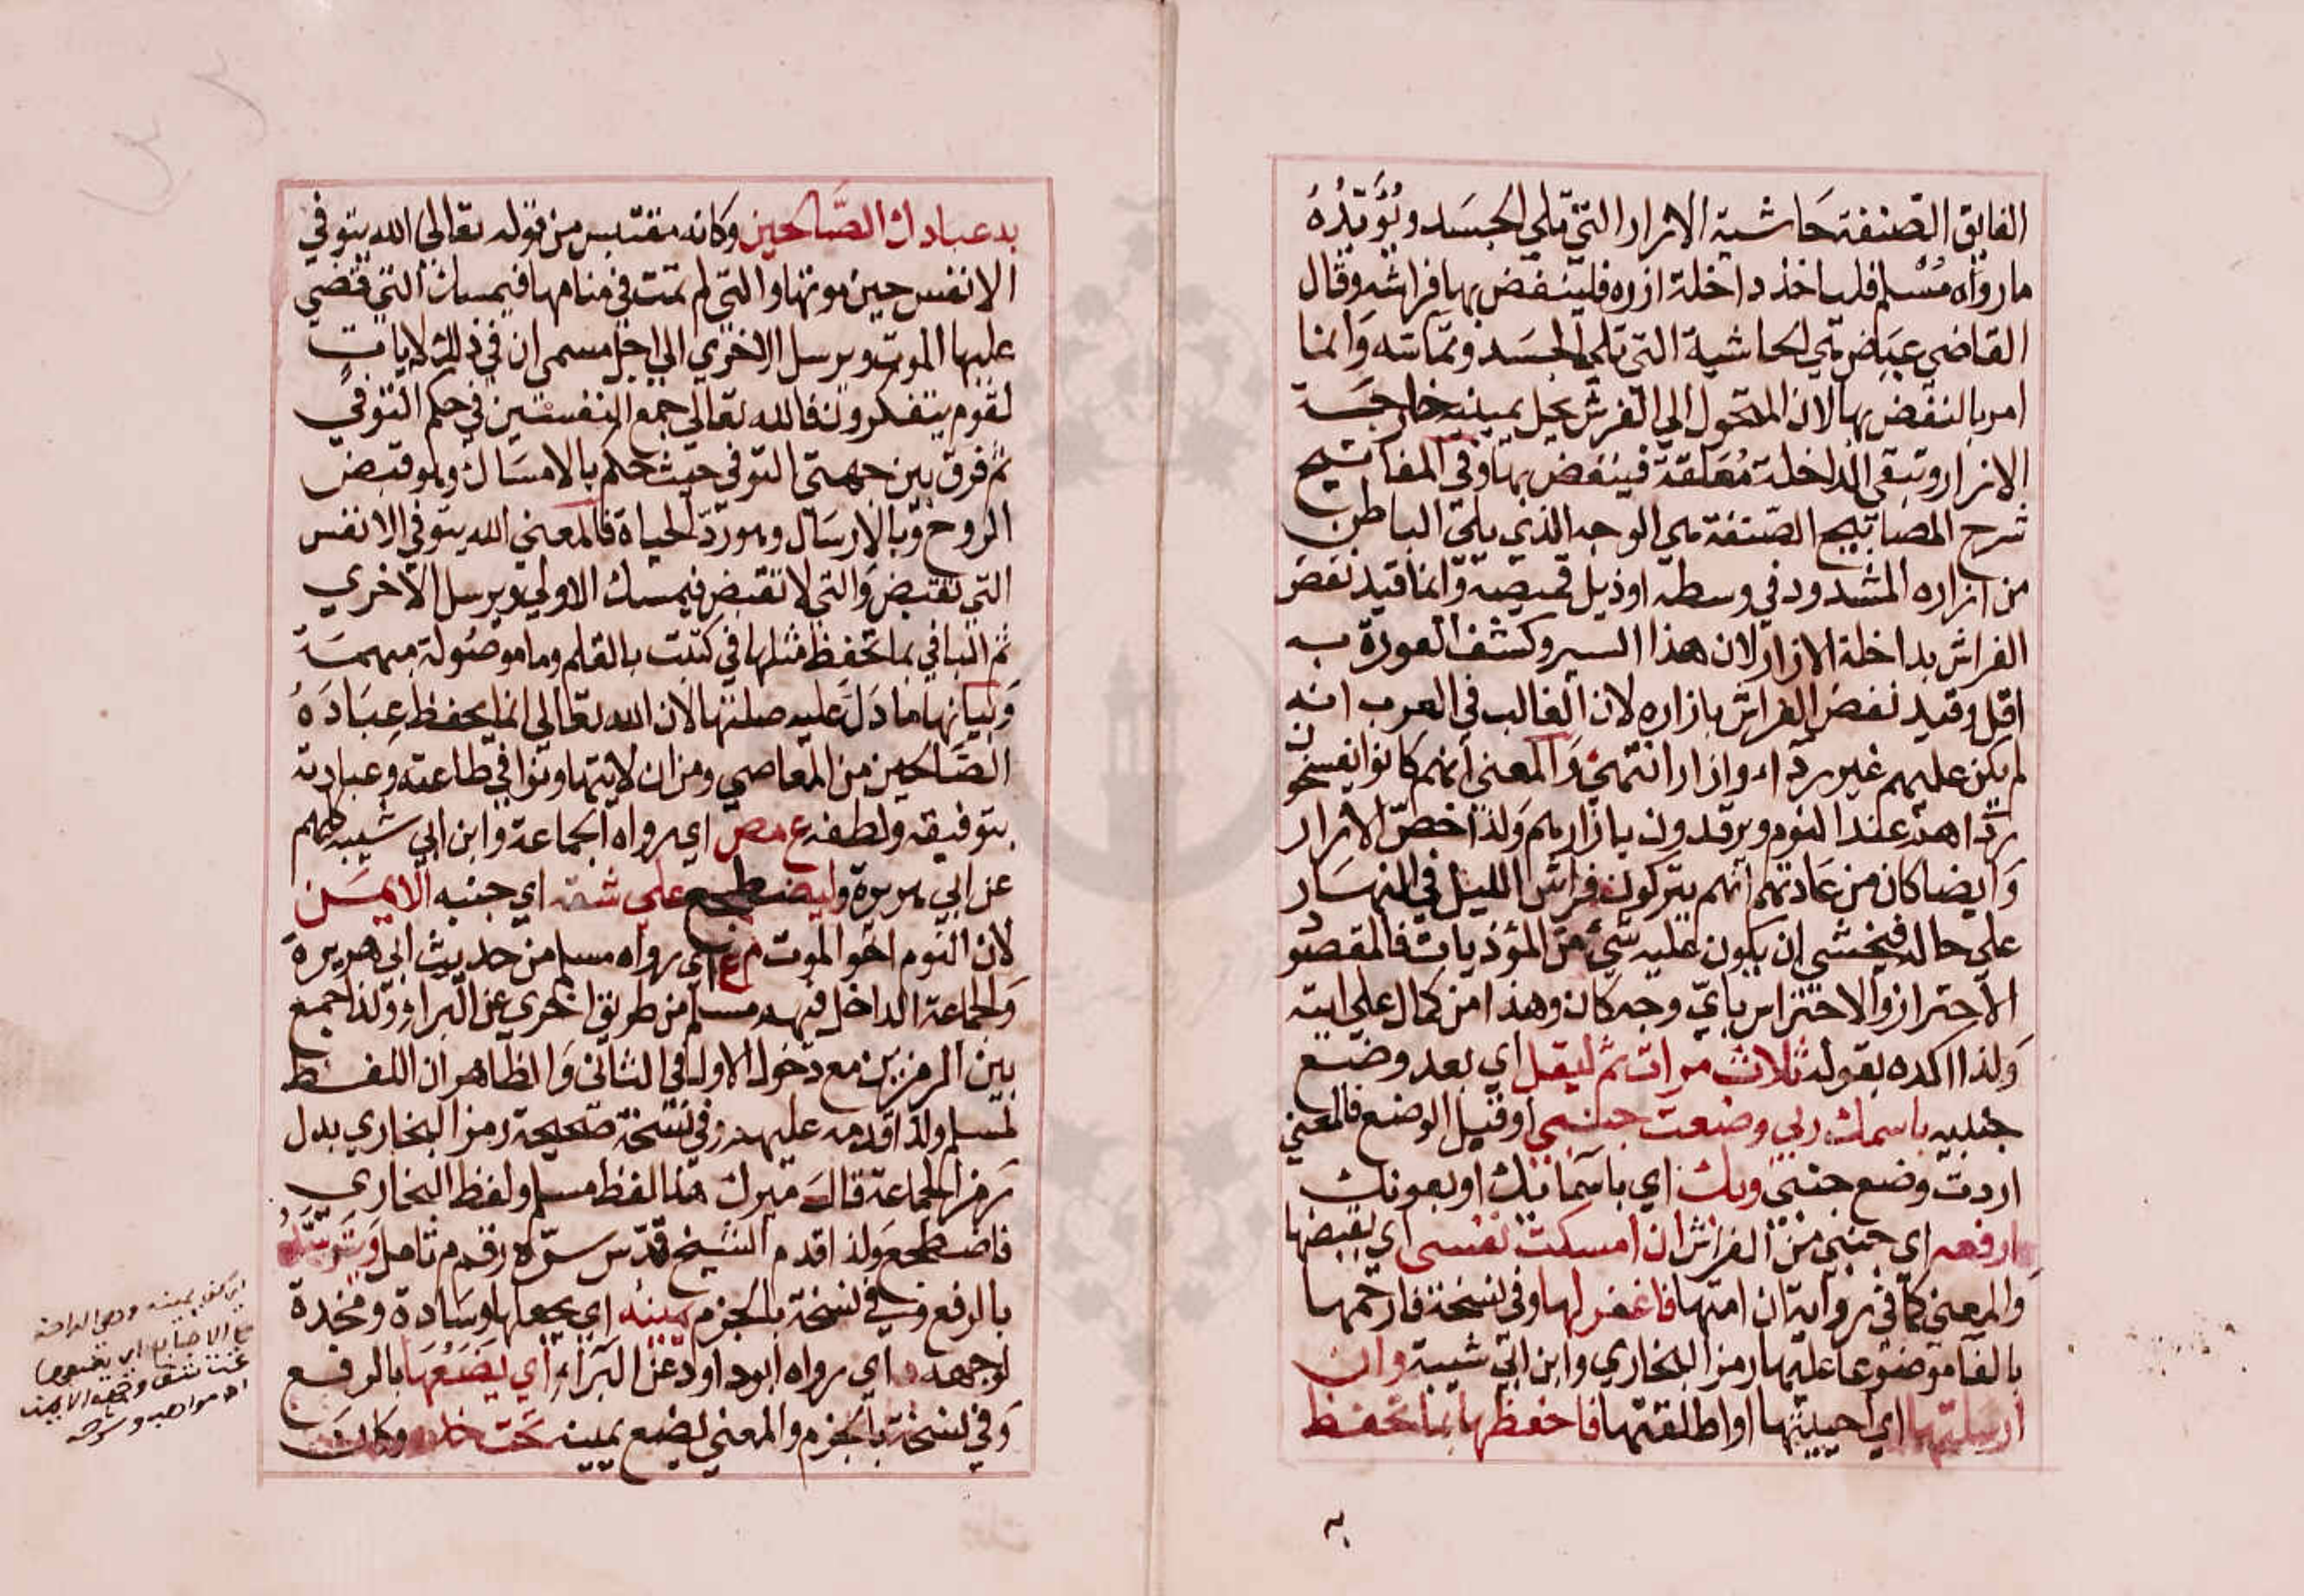 الفايق الصنفة حاشية الازار التي تلي الجسد ويُؤيّدُهُ
ما رواه مُسْلم فلياخذ داخلة ازره فلينفض بها فراشه وقال
القاضي عياض هي الحاشية التي تلي الجسد وتماسّه وانما
امر بالنفض بها لان المتحول الي الفرش يحل بيمينه خارجة
الازار وتبقي الداخلة مُعَلقة فينفض بها وفي المفاتيح
شرح المصابيح الصنفة هي الوجه الذي يلي الباطن
من ازاره المشدود في وسطه او ذيل قميصة وانما قيد نفض
الفراش بداخلة الازار لان هذا السير وكشف العورة به
اقل وقيد نفض الفراش بازاره لان الغالب في العرب انه
لم يكن عليهم غير رداء وازار انتهي والمعني انهم كانوا يفسخون
رداهم عند النوم ويرقدون بازارهم ولذا خصّ الازار
وايضا كان من عادتهم انهم يتركون فراش الليل في النهار
علي حاله فيخشي ان يكون عليه شيء من المؤذيات فالمقصُو
الاحتراز والاحتراس بايّ وجه كان وهذا من كمال
ولذا اكده بقوله ثلاث مرات ثم ليقل اي بعد وضع
جنبيه باسمك ربي وضعت جنبي او قبيل الوضع فالمعني
اردت وضع جنبي وبك اي باسمايك او بعونك
ارفعه اي جنبي من الفراش ان امسكت نفسي اي بقبضها
والمعني كما في رواية ان امتها فاغفر لها وفي نسخة فارحمها
بالفا موضوعا عليها رمز البخاري وابن ابي شيبة وان
ارسلتها اي احييتها او اطلقتها فاحفظها بما تحفظ
به
به عبادك الصَّالحين وكانه مقتبس من قوله تعالي الله يتوفي
الانفس حين موتها والتي لم تمت في منامها فيمسك التي قضي
عليها الموت ويرسل الاخري الي اجل مسمي ان في ذلك لايات
لقوم يتفكرون فالله تعالي جمع النفستين في حكم التوفي
ثم فرق بين جهتي التوفي حيث حكم بالامساك وهو قبض
الروح وبالارسال وهو ردّ الحياة فالمعني الله يتوفي الانفس
التي تقبض والتي لا تقبض فيمسك الاولي ويرسل الاخري
ثم البا في بما تحفظ مثلها في كتبت بالقلم وما موصُولة مبهمة
وبيانها ما دلَّ عليه صلتها لان الله تعالي انما يحفظ عِبَادَهُ
الصَّالحين من المعاصي ومن ان لا يتهاونوا في طاعته وعبادته
بتوفيقه ولطفه ع مص اي رواه الجماعة وابن ابي شيبة كلهم
عن ابي هريرة وليضطجع علي شقه اي جنبه الايمن
لان النوم اخو الموت م ع اي رواه مسلم من حديث ابي هريرة
والجماعة الداخل فيهم مسلم من طريق اخري عن البراء ولذا جمع
بين الرمزين مع دخول الاول في الثاني والظاهر ان اللفظ
لمسلم ولذا قدمه عليهم وفي نسخة صحيحة رمز البخاري بدل
رمز الجماعة قال ميرك هذا لفظ مسلم ولفظ البخاري
فاضطجع ولذا قدم الشيخ قدّس سرّه رقم م تامل ويتوسَّدُ
بالرفع وفي نسخة بالجزم يمينه اي يجعلها وسادة ومخدة
لوجهه د اي رواه ابو داود عن البراء اي يَضَعُهَا بالرفع
وفي نسخة بالجزم والمعني ليضع يمينه تحت خده وكان